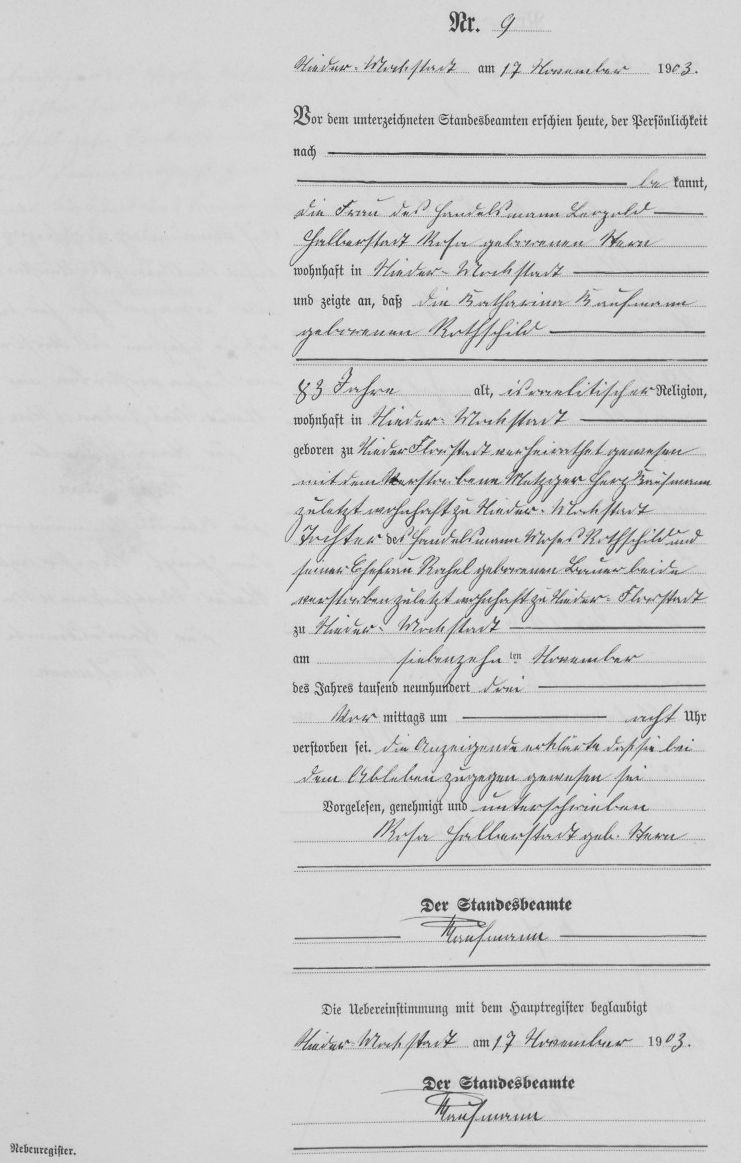 Nr. 9
Nieder-Mockstadt am 17 November 1903.
Vor dem unterzeichneten Standesbeamten erschien heute, der Persönlichkeit
nach
be kannt,
die Frau des Handelsmann Leopold
Halberstadt Rosa geborenen Stern
wohnhaft in Nieder-Mockstadt
und zeigte an, daß die Katharina Kaufmann
geborenen Rothschild
83 Jahre alt, israelitischer Religion,
wohnhaft in Nieder-Mockstadt
geboren zu Nieder Florstadt verheirathet gewesen
mit dem Verstorbene Metzger Herz Kaufmann
zuletzt wohnhaft zu Nieder-Mockstadt
Tochter des Handelsmann Moses Rothschild und
seiner Ehefrau Rahel geborenen Bauer beide
verstorben zuletzt wohnhaft zu Nieder-Florstadt
zu Nieder-Mockstadt
am siebenzehn ten November
des Jahres tausend neunhundert drei
Vor mittags um acht Uhr
verstorben sei. die Anzeigende erklärte daß sie bei
dem Ableben zugegen gewesen sei
Vorgelesen, genehmigt und unterschrieben
Rosa Halberstadt geb. Stern
Der Standesbeamte
Kaufmann
Die Uebereinstimmung mit dem Hauptregister beglaubigt
Nieder-Mockstadt am 17 November 1903.
Der Standesbeamte
Kaufmann
Nebenregister.